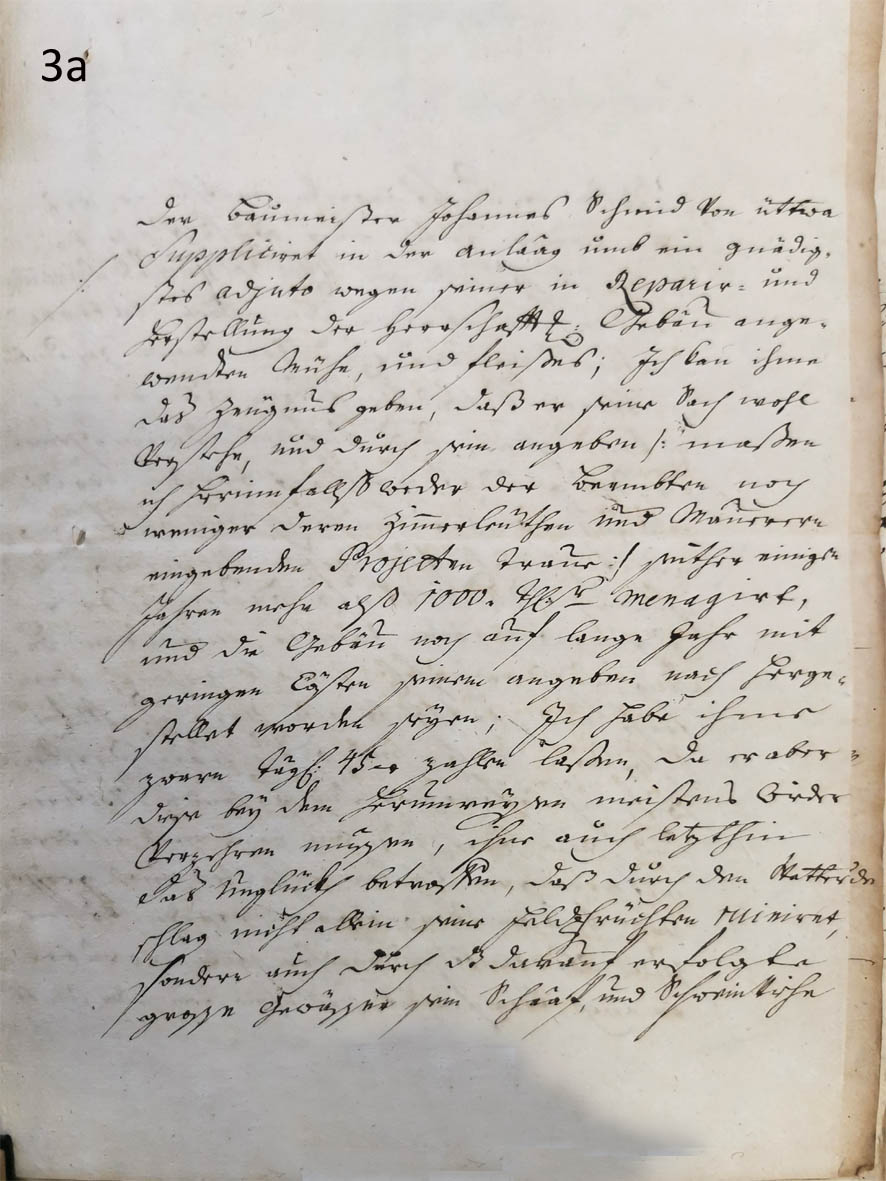 3a
Der Baumeister Johannes Schmid von üttwa
Suppliciret in der anlaag umb ein gnädig-
stes adjuto wegen seiner in Reparir- und
herstellung der herrschafftl: Gebäu ange-
wendten Mühe, und fleißes; Ich kan ihme
das Zeugnus geben, daß er seine Sach wohl
verstehe, und durch sein angeben /: maßen
ich hierinnfalls weder der Beambten noch
weniger deren Zimmerleuthen und Maurern
eingebenden Projecten traue :/ seither einigen
Jahren mehr alß 1000. menagirt,
und die Gebäu noch auf lange Jahr mit
geringen Cösten seinem angeben nach herge-
stellet worden seyen; Ich habe ihme
zwarn tägl: 45 zahlen laßen, da er aber
diese bey dem herumreysen meistens wider
verzehren müssen, ihne auch letzthin
das Unglückh betroffen, daß durch den Wetter
schlag nicht allein seine feldfrüchten ruiniret,
sondern auch durch dz darauf erfolgte
grosse Gewässer sein Schaaf, und Schweinviehe